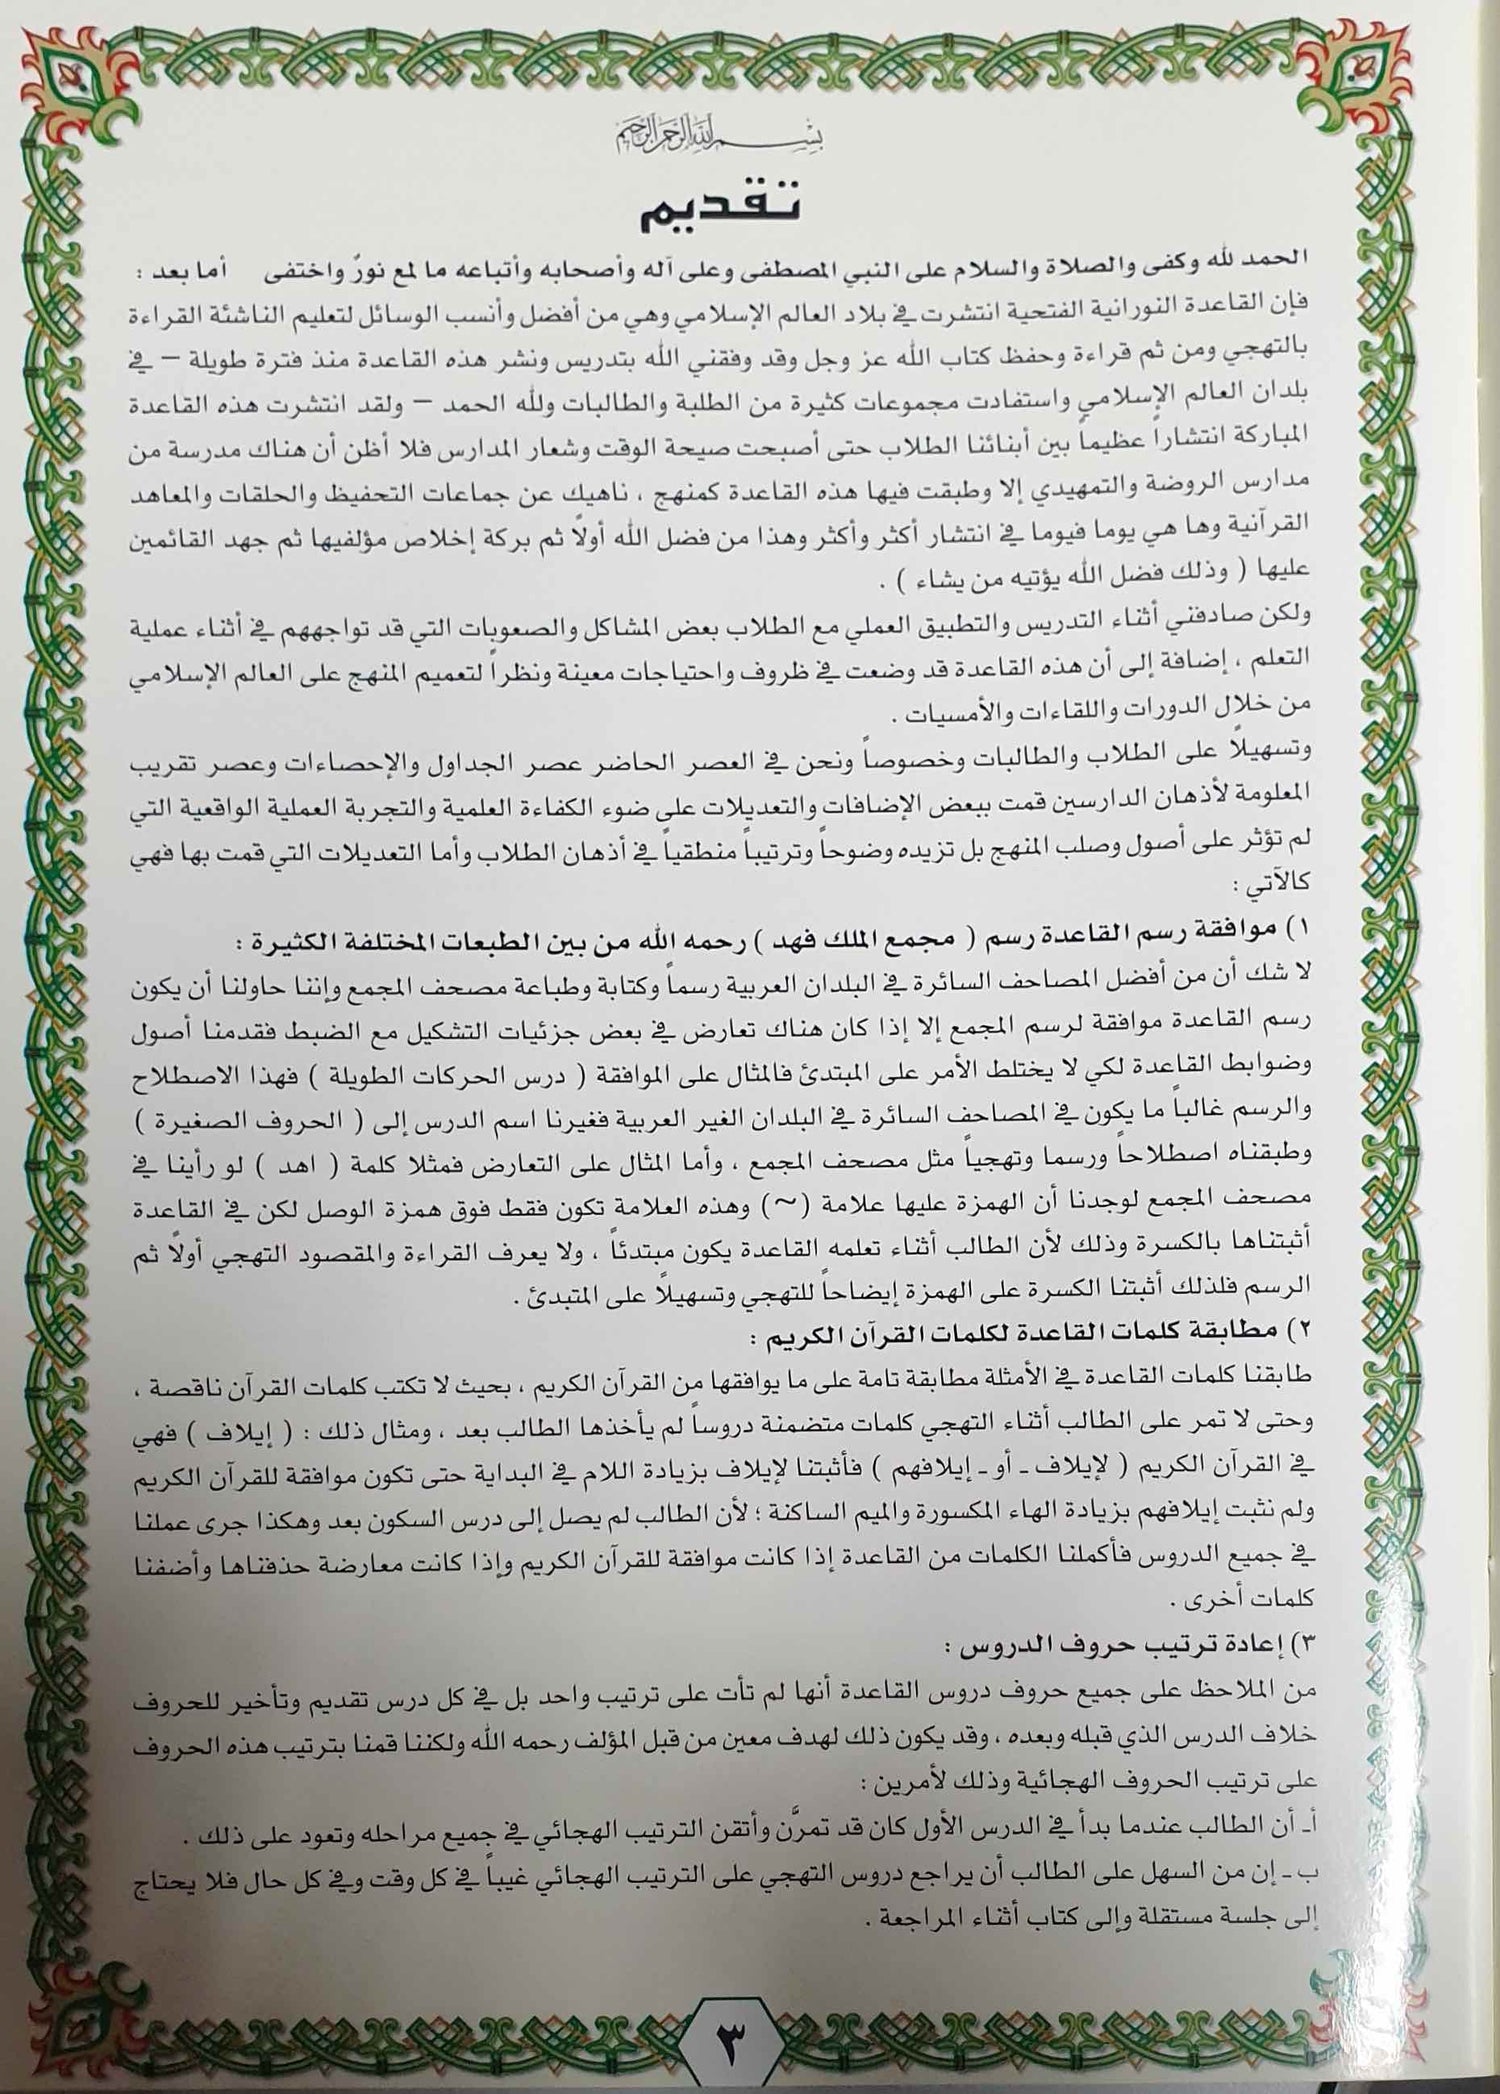 بسم الله الرحمن الرحيم
تقديم
الحمد لله وكفى والصلاة والسلام على النبي المصطفى وعلى آله وأصحابه وأتباعه ما لمع نورٌ واختفى أما بعد :
فإن القاعدة النورانية الفتحية انتشرت في بلاد العالم الإسلامي وهي من أفضل وأنسب الوسائل لتعليم الناشئة القراءة
بالتهجي ومن ثم قراءة وحفظ كتاب الله عز وجل وقد وفقني الله بتدريس ونشر هذه القاعدة منذ فترة طويلة – في
بلدان العالم الإسلامي واستفادت مجموعات كثيرة من الطلبة والطالبات ولله الحمد – ولقد انتشرت هذه القاعدة
المباركة انتشاراً عظيماً بين أبنائنا الطلاب حتى أصبحت صيحة الوقت وشعار المدارس فلا أظن أن هناك مدرسة من
مدارس الروضة والتمهيدي إلا وطبقت فيها هذه القاعدة كمنهج ، ناهيك عن جماعات التحفيظ والحلقات والمعاهد
القرآنية وها هي يوما فيوما في انتشار أكثر وأكثر وهذا من فضل الله أولاً ثم بركة إخلاص مؤلفيها ثم جهد القائمين
عليها ( وذلك فضل الله يؤتيه من يشاء ) .
ولكن صادفني أثناء التدريس والتطبيق العملي مع الطلاب بعض المشاكل والصعوبات التي قد تواجههم في أثناء عملية
التعلم ، إضافة إلى أن هذه القاعدة قد وضعت في ظروف واحتياجات معينة ونظراً لتعميم المنهج على العالم الإسلامي
من خلال الدورات واللقاءات والأمسيات .
وتسهيلاً على الطلاب والطالبات وخصوصاً ونحن في العصر الحاضر عصر الجداول والإحصاءات وعصر تقريب
المعلومة لأذهان الدارسين قمت ببعض الإضافات والتعديلات على ضوء الكفاءة العلمية والتجربة العملية الواقعية التي
لم تؤثر على أصول وصلب المنهج بل تزيده وضوحاً وترتيباً منطقياً في أذهان الطلاب وأما التعديلات التي قمت بها فهي
كالآتي :
١) موافقة رسم القاعدة رسم ( مجمع الملك فهد ) رحمه الله من بين الطبعات المختلفة الكثيرة :
لا شك أن من أفضل المصاحف السائرة في البلدان العربية رسماً وكتابة وطباعة مصحف المجمع وإننا حاولنا أن يكون
رسم القاعدة موافقة لرسم المجمع إلا إذا كان هناك تعارض في بعض جزئيات التشكيل مع الضبط فقدمنا أصول
وضوابط القاعدة لكي لا يختلط الأمر على المبتدئ فالمثال على الموافقة ( درس الحركات الطويلة ) فهذا الاصطلاح
والرسم غالباً ما يكون في المصاحف السائرة في البلدان الغير العربية فغيرنا اسم الدرس إلى ( الحروف الصغيرة )
وطبقناه اصطلاحاً ورسما وتهجياً مثل مصحف المجمع ، وأما المثال على التعارض فمثلا كلمة ( اهد ) لو رأينا في
مصحف المجمع لوجدنا أن الهمزة عليها علامة (~) وهذه العلامة تكون فقط فوق همزة الوصل لكن في القاعدة
أثبتناها بالكسرة وذلك لأن الطالب أثناء تعلمه القاعدة يكون مبتدئاً ، ولا يعرف القراءة والمقصود التهجي أولاً ثم
الرسم فلذلك أثبتنا الكسرة على الهمزة إيضاحاً للتهجي وتسهيلاً على المتبدئ .
٢) مطابقة كلمات القاعدة لكلمات القرآن الكريم :
طابقنا كلمات القاعدة في الأمثلة مطابقة تامة على ما يوافقها من القرآن الكريم ، بحيث لا تكتب كلمات القرآن ناقصة ،
وحتى لا تمر على الطالب أثناء التهجي كلمات متضمنة دروساً لم يأخذها الطالب بعد ، ومثال ذلك : ( إيلاف ) فهي
في القرآن الكريم ( لإيلاف ـ أو ـ إيلافهم ) فأثبتنا لإيلاف بزيادة اللام في البداية حتى تكون موافقة للقرآن الكريم
ولم نثبت إيلافهم بزيادة الهاء المكسورة والميم الساكنة ؛ لأن الطالب لم يصل إلى درس السكون بعد وهكذا جرى عملنا
في جميع الدروس فأكملنا الكلمات من القاعدة إذا كانت موافقة للقرآن الكريم وإذا كانت معارضة حذفناها وأضفنا
كلمات أخرى .
٣) إعادة ترتيب حروف الدروس :
من الملاحظ على جميع حروف دروس القاعدة أنها لم تأت على ترتيب واحد بل في كل درس تقديم وتأخير للحروف
خلاف الدرس الذي قبله وبعده ، وقد يكون ذلك لهدف معين من قبل المؤلف رحمه الله ولكننا قمنا بترتيب هذه الحروف
على ترتيب الحروف الهجائية وذلك لأمرين :
أـ أن الطالب عندما بدأ في الدرس الأول كان قد تمرَّن وأتقن الترتيب الهجائي في جميع مراحله وتعود على ذلك .
ب ـ إن من السهل على الطالب أن يراجع دروس التهجي على الترتيب الهجائي غيباً في كل وقت وفي كل حال فلا يحتاج
إلى جلسة مستقلة وإلى كتاب أثناء المراجعة .
٣